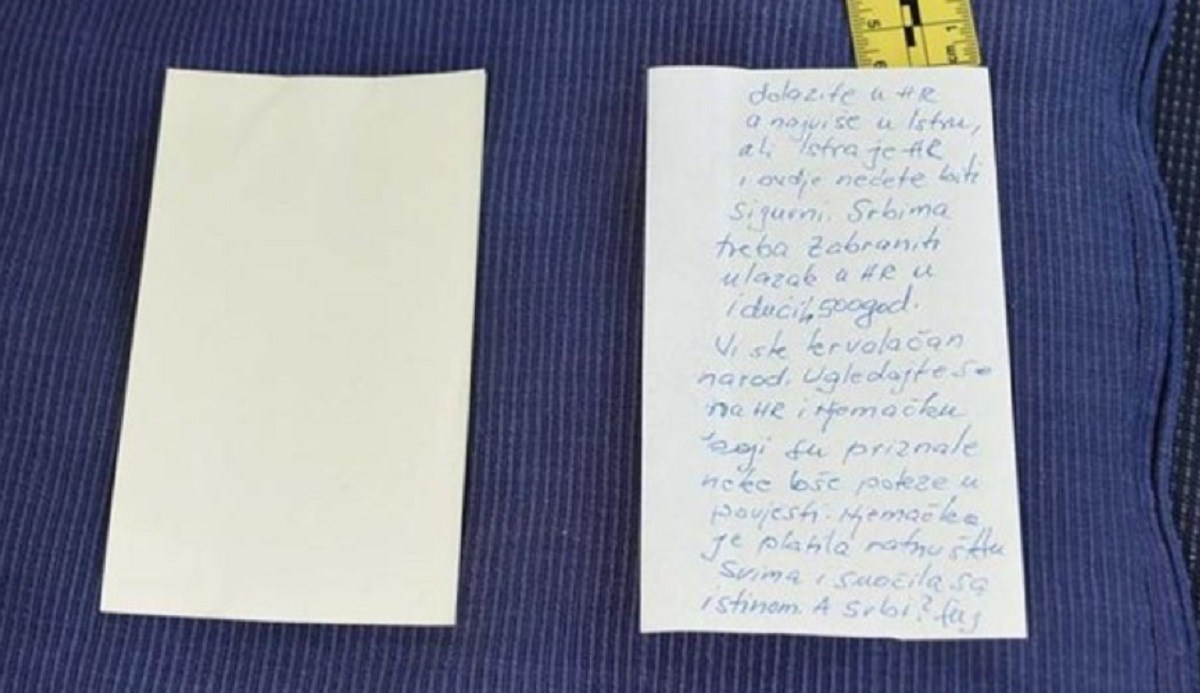 dolazite u HR
a najviše u Istru,
ali Istra je HR
i ovdje nećete biti
sigurni. Srbima
treba zabraniti
ulazak u HR u
idućih 500 god.
Vi ste krvoločan
narod. Ugledajte se
na HR i Njemačku
koji su priznale
neke loše poteze u
povjesti. Njemačka
je platila ratnu štetu
svima i suočila sa
istinom. A Srbi? Fuj
5
6
1